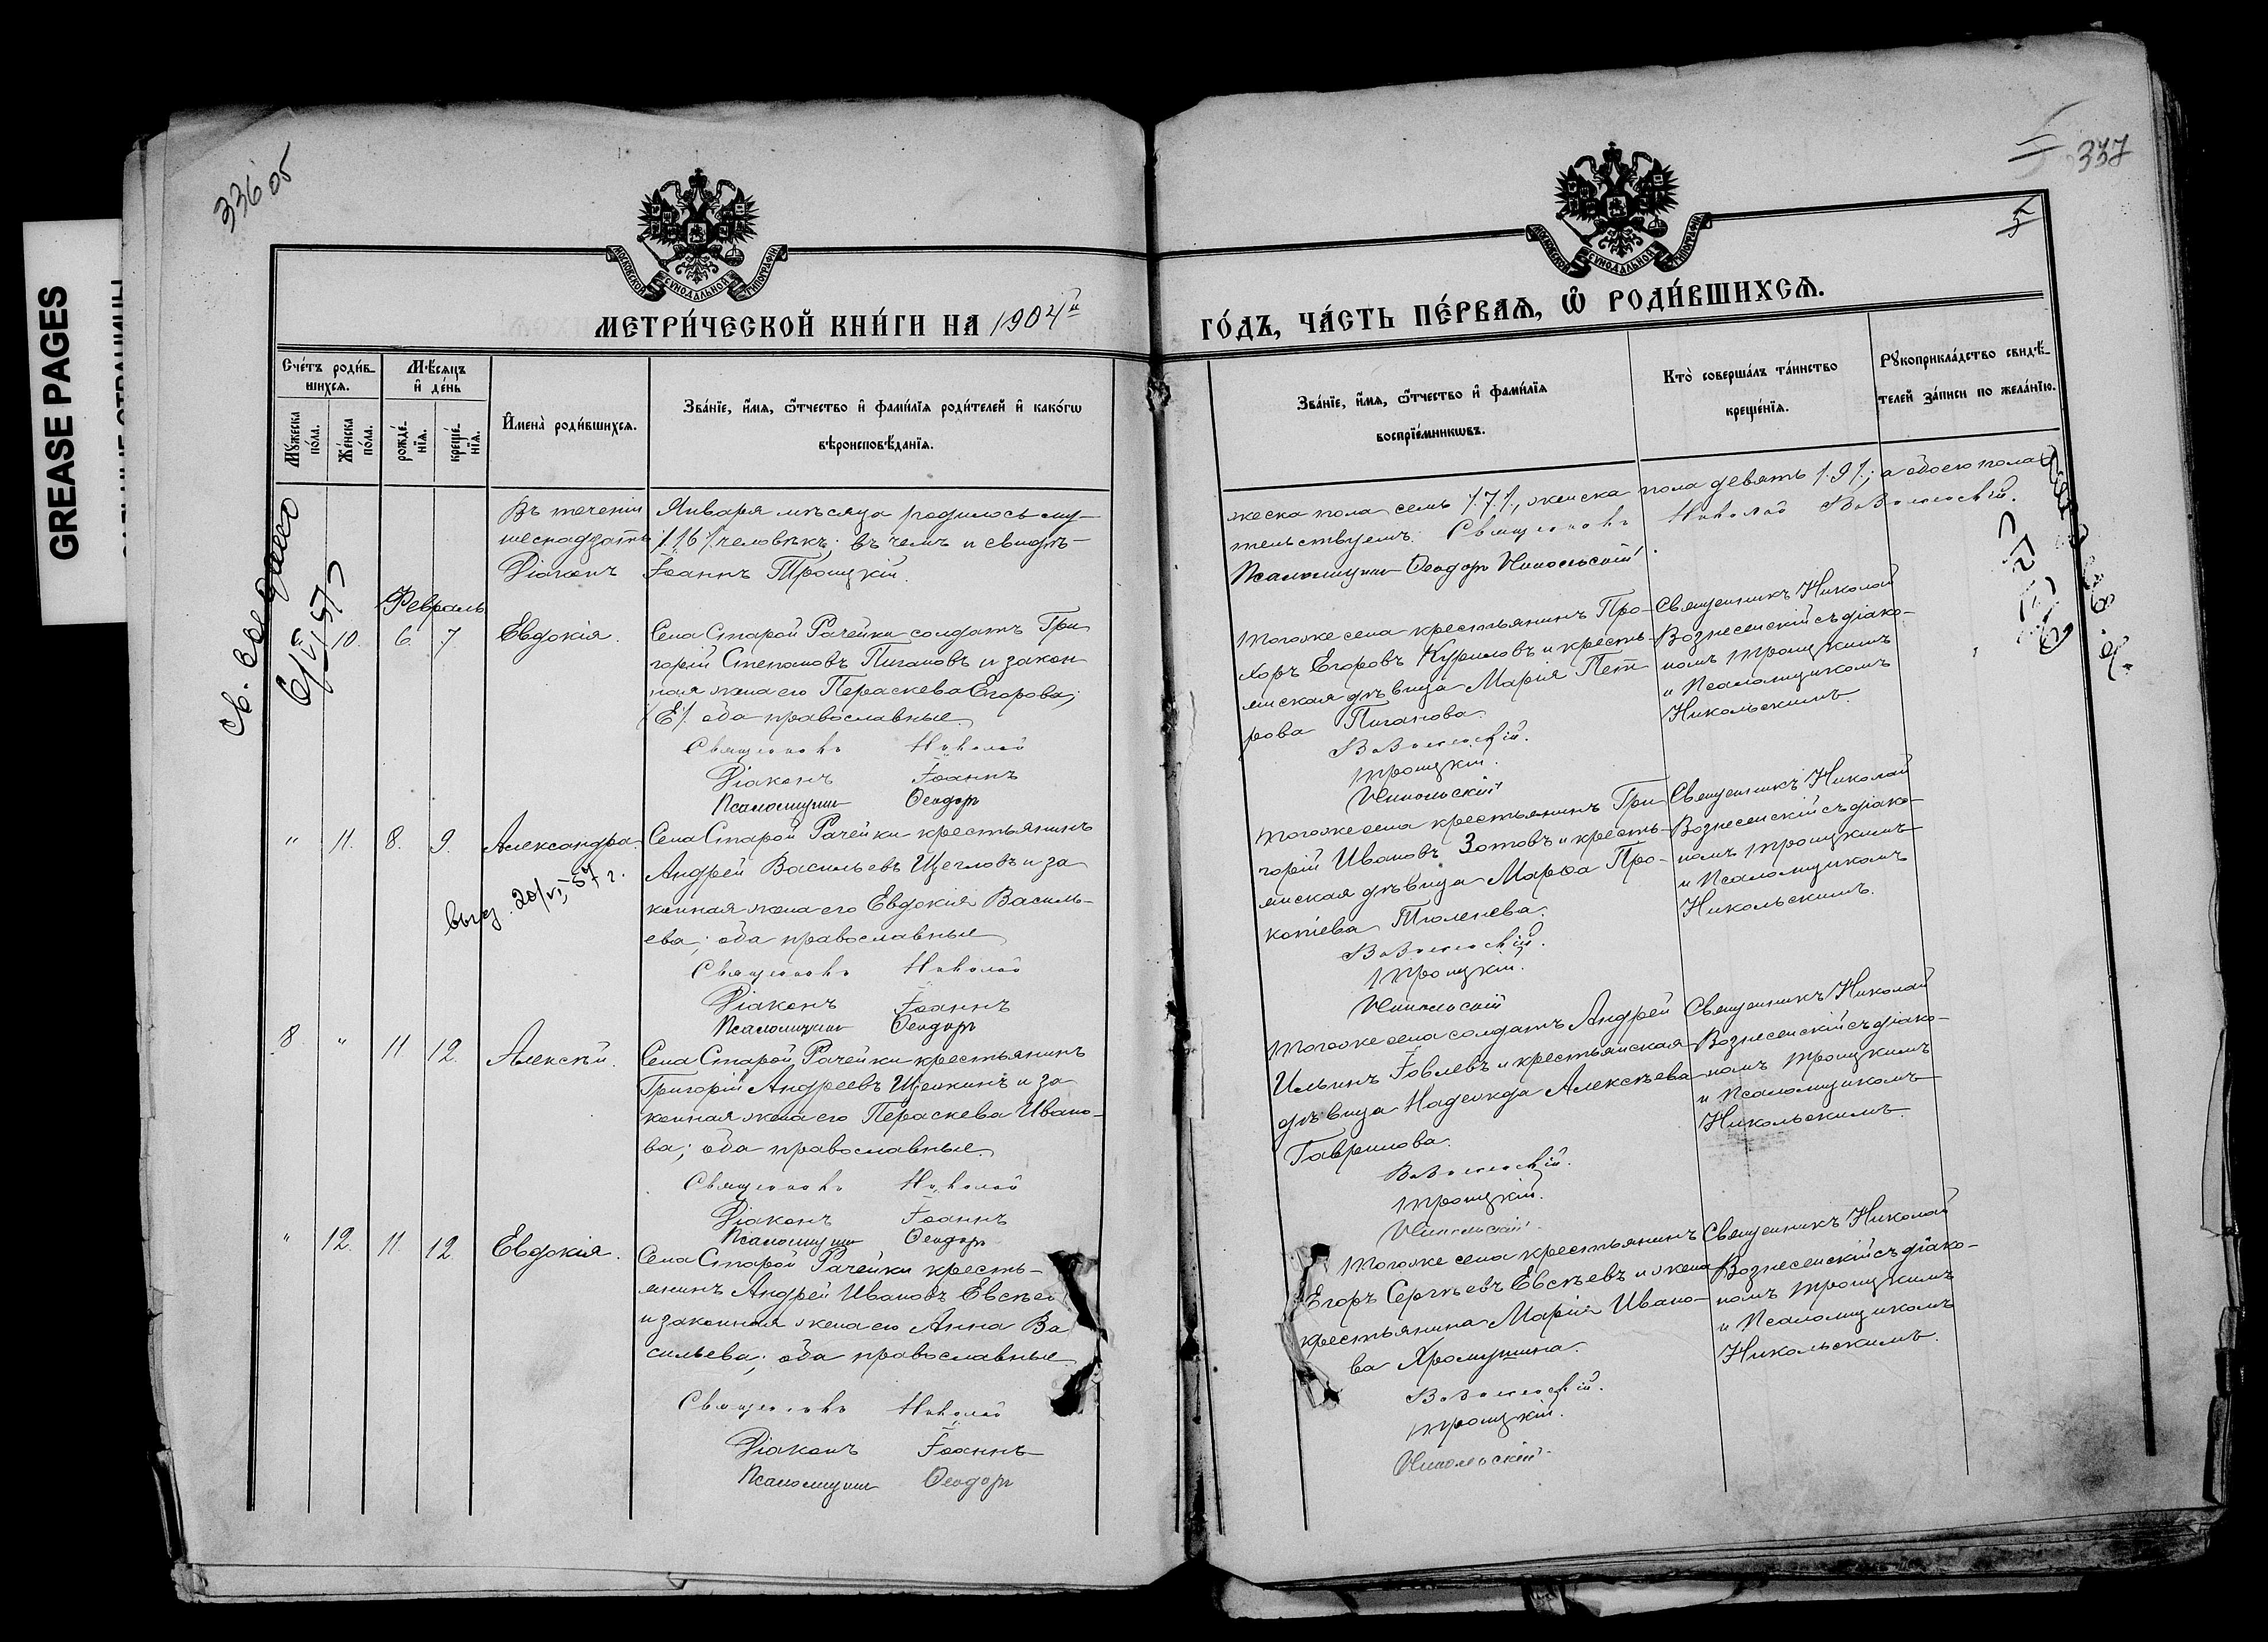 GREASE PAGES
336 об
337
5
МОСКОВСКОЙ СУНОДАЛЬНОЙ ТИПОГРАФІИ
МОСКОВСКОЙ СУНОДАЛЬНОЙ ТИПОГРАФІИ
МЕТРИ́ЧЕСКОЙ КНИ́ГИ НА 1904й
ГО́ДЪ, ЧА́СТЬ ПЕ́РВАѦ, Ѽ РОДИ́ВШИХСѦ.
Сче́тъ роди́в-
шихся.
Мѣсяцъ
и де́нь
Мужеска по́ла.
Же́нска по́ла.
рожде́-
нїя.
креще́-
нїя.
Имена̀ роди́вшихся.
Зва́нїе, и́мя, ѻ҆́тчество и фами́лїя роди́телей и како́гѡ
вѣроисповѣ́данїя.
Зва́нїе, и́мя, ѻ҆́тчество и фами́лїя
воспрїе́мникѡвъ.
Кто̀ соверша́лъ та́инство
креще́нїя.
Рꙋкоприкла́дство свидѣ́-
телей за́писи по жела́нїю.
Въ теченіи Января мѣсяца родилось му-
жеска пола семь /7/, женска пола девять /9/; а обоего пола
шеснадзать /16/ человѣкъ; въ чемъ и свидѣ-
тельствуемъ: Священникъ Николай Вознесенскій.
Діаконъ Іоаннъ Троицкій.
Псаломщикъ Ѳеодоръ Никольскій.
Февраль
" 10. 6. 7. Евдокія.
Села Старой Рачейки солдатъ Гри
горій Степановъ Пигановъ и закон
ная жена его Параскева Егорова;
/Е/. оба православные.
Священникъ Николай
Діаконъ Іоаннъ
Псаломщикъ Ѳеодоръ
Тогоже села крестьянинъ Про-
хоръ Егоровъ Куриловъ и кресть-
янская дѣвица Марія Пет
рова Пиганова.
Вознесенскій.
Троицкій.
Никольскій
Священникъ Николай
Вознесенскій съ діако-
номъ Троицкимъ
и Псаломщикомъ
Никольскимъ.
" 11. 8. 9. Александра.
выд. 20/VI-57 г.
Села Старой Рачейки крестьянинъ
Андрей Васильевъ Щегловъ и за
конная жена его Евдокія Василь-
ева; оба православные
Священникъ Николай
Діаконъ Іоаннъ
Псаломщикъ Ѳеодоръ
Тогоже села крестьянинъ Гри
горій Ивановъ Зотовъ и кресть-
янская дѣвица Марѳа Про-
копіева Тюленева.
Вознесенскій.
Троицкій.
Никольскій
Священникъ Николай
Вознесенскій съ діако-
номъ Троицкимъ
и Псаломщикомъ
Никольскимъ.
8. " 11 12. Алексѣй.
Села Старой Рачейки крестьянинъ
Григорій Андреевъ Щелкинъ и за
конная жена его Параскева Ивано-
ва; оба православные.
Священникъ Николай
Діаконъ Іоаннъ
Псаломщикъ Ѳеодоръ
Тогоже села солдатъ Андрей
Ильинъ Іовлевъ и крестьянская
дѣвица Надежда Алексѣева
Гаврилова.
Вознесенскій.
Троицкій.
Никольскій
Священникъ Николай
Вознесенскій съ діако-
номъ Троицкимъ
и Псаломщикомъ
Никольскимъ.
" 12. 11. 12. Евдокія.
Села Старой Рачейки кресть-
янинъ Андрей Ивановъ Евсѣев
и законная жена его Анна Ва
сильева; оба православные
Священникъ Николай
Діаконъ Іоаннъ
Псаломщикъ Ѳеодоръ
Тогоже села крестьянинъ
Егоръ Сергѣевъ Евсѣевъ и жена
крестьянина Марія Ивано-
ва Хромушина.
Вознесенскій.
Троицкій.
Никольскій
Священникъ Николай
Вознесенскій съ діако-
номъ Троицкимъ
и Псаломщикомъ
Никольскимъ.